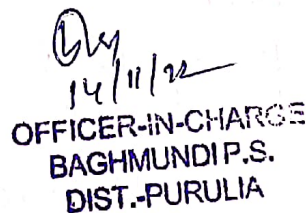 14/11/22
OFFICER-IN-CHARGE
BAGHMUNDI P.S.
DIST.-PURULIA